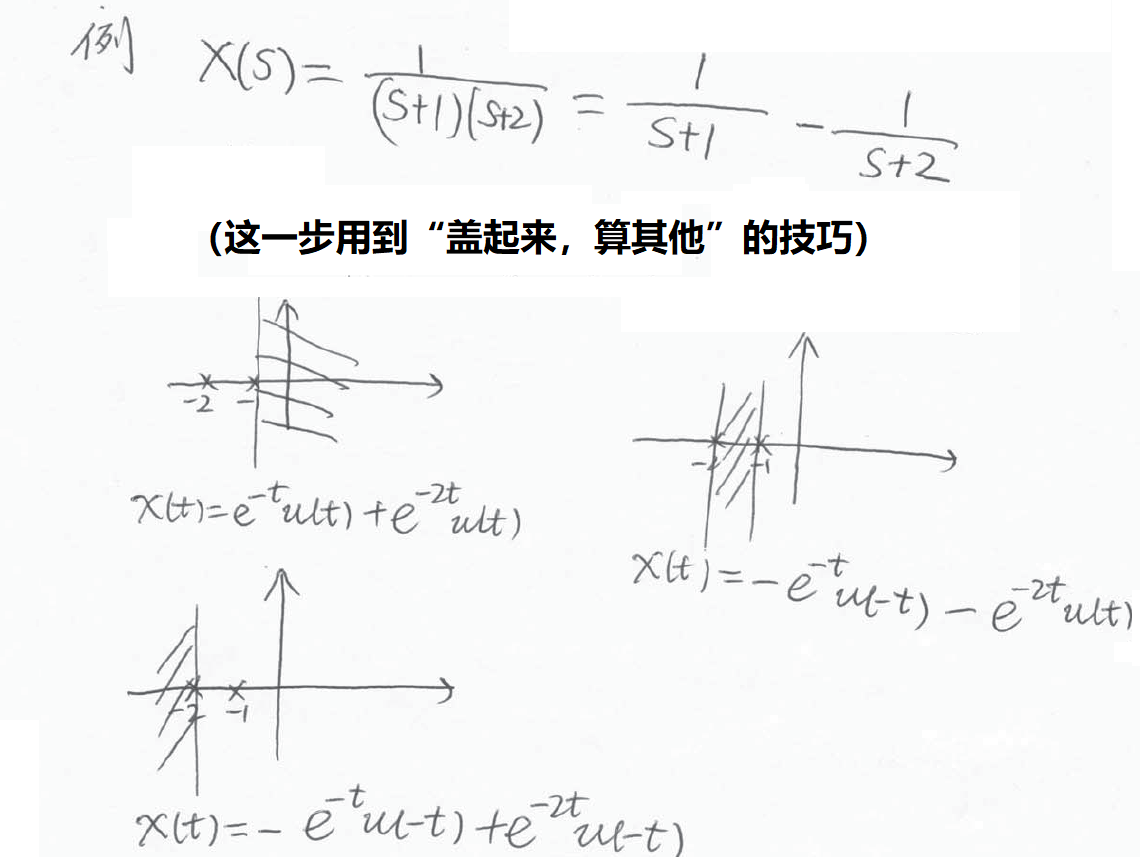 例 X(S) = 1/((S+1)(S+2)) = 1/(S+1) - 1/(S+2)
（这一步用到“盖起来，算其他”的技巧）
-2 -
x(t)=e^{-t}u(t)+e^{-2t}u(t)
-2 -1
x(t)=-e^{-t}u(-t)-e^{-2t}u(t)
-2 -1
x(t)=-e^{-t}u(-t)+e^{-2t}u(-t)